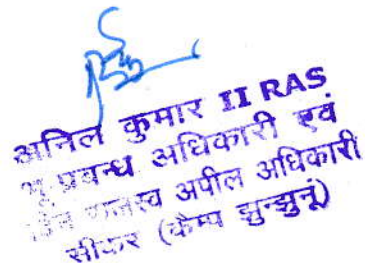 अनिल कुमार II RAS
भू प्रबन्ध अधिकारी एवं
राजस्व अपील अधिकारी
सीकर (कैम्प झुन्झुनूं)